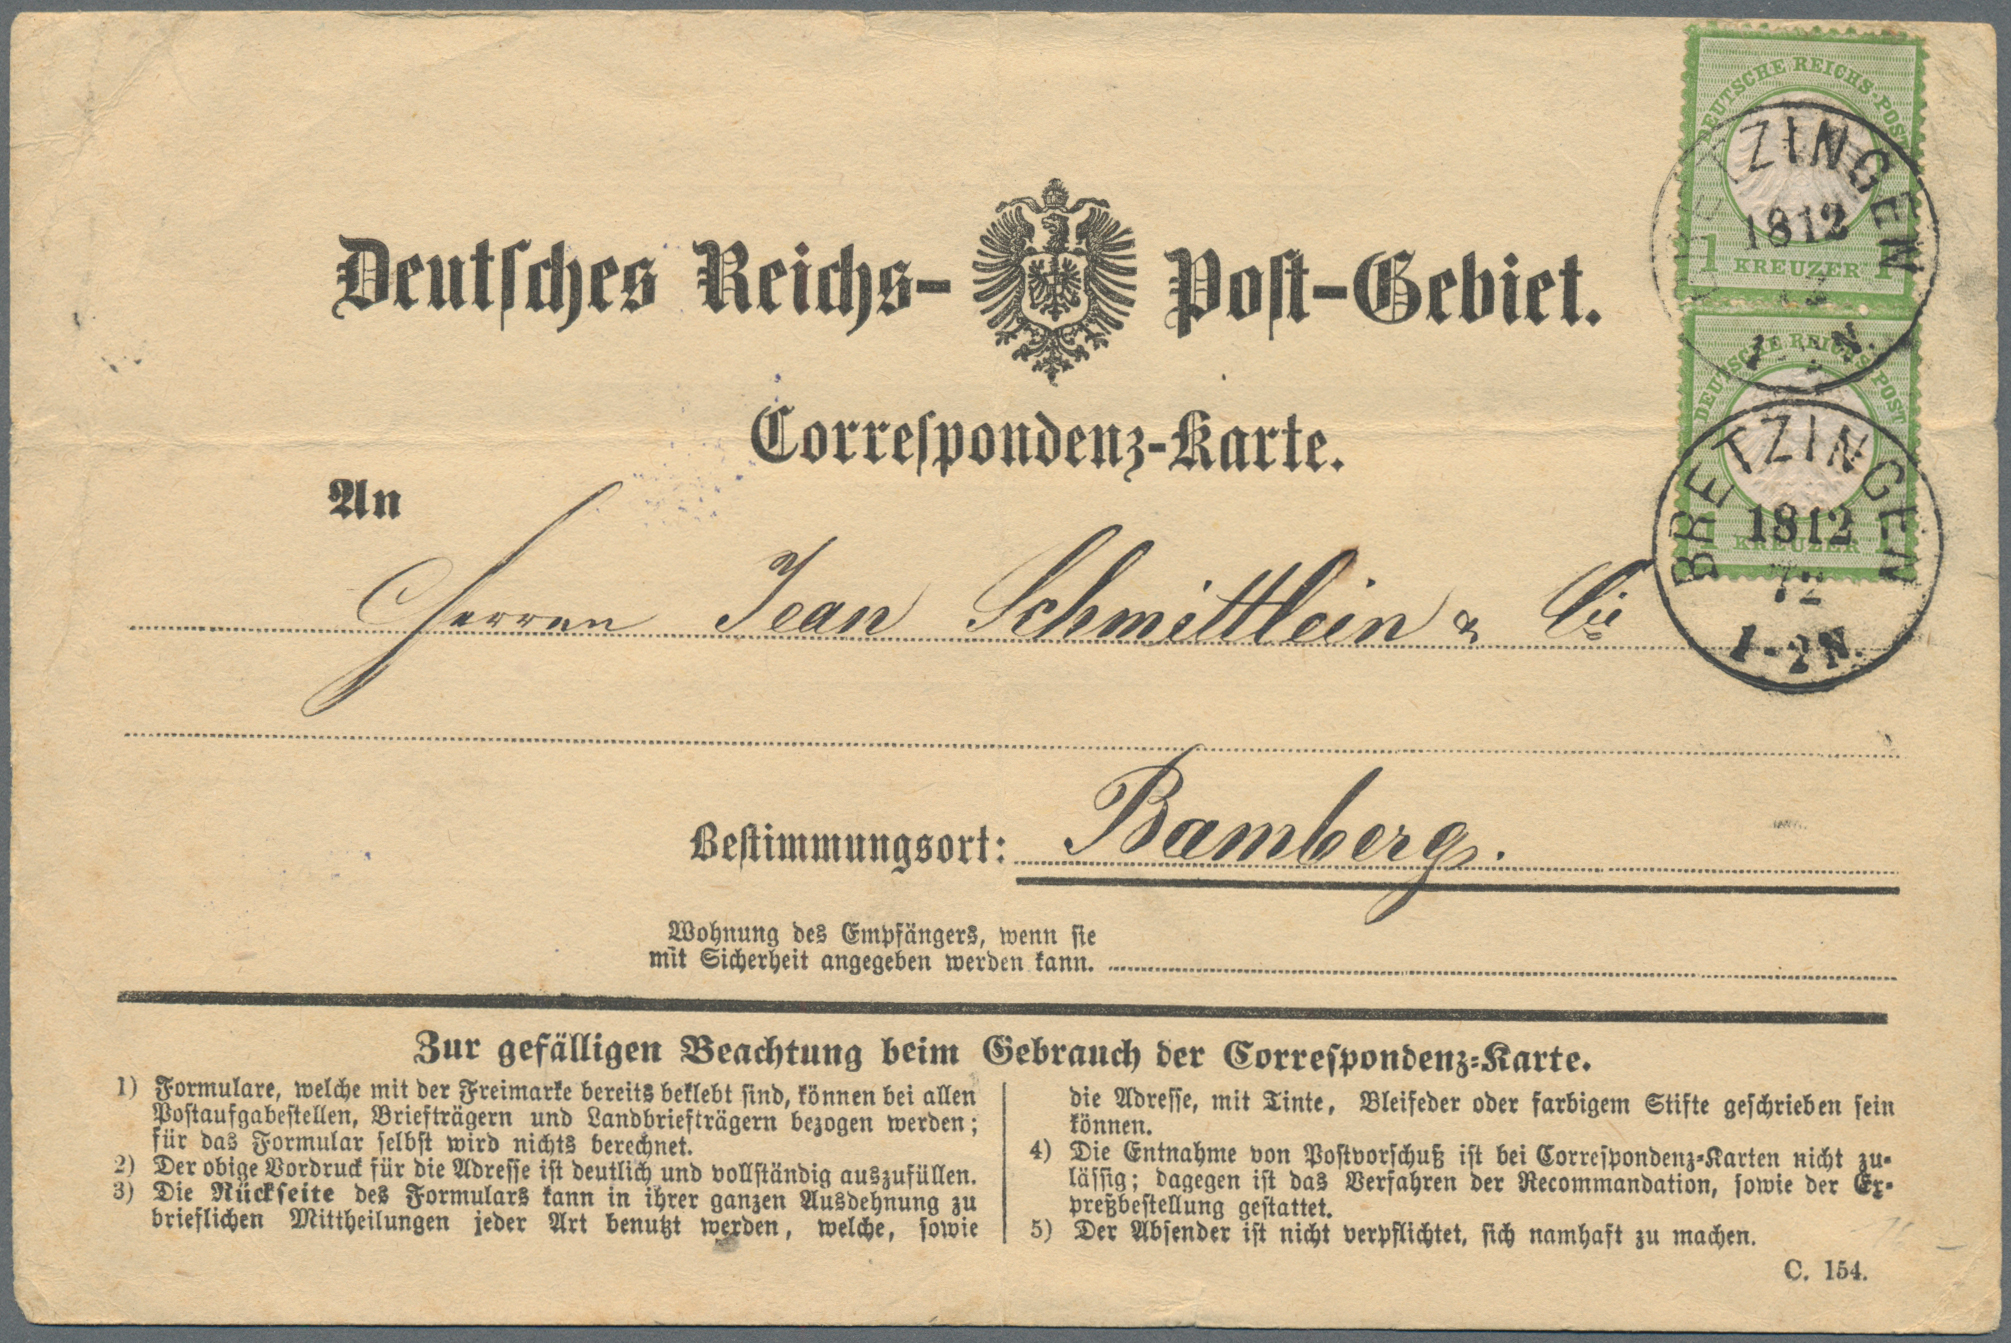 DEUTSCHE REICHS-POST
1 KREUZER 1
BRETZINGEN
1812
72
1-2N.
DEUTSCHE REICHS-POST
1 KREUZER 1
BRETZINGEN
1812
72
1-2N.
Deutsches Reichs- Post-Gebiet.
Correspondenz-Karte.
An
Herren Jean Schmittlein & Cie
Bestimmungsort: Bamberg.
Wohnung des Empfängers, wenn sie
mit Sicherheit angegeben werden kann.
Zur gefälligen Beachtung beim Gebrauch der Correspondenz-Karte.
1) Formulare, welche mit der Freimarke bereits beklebt sind, können bei allen
Postaufgabestellen, Briefträgern und Landbriefträgern bezogen werden;
für das Formular selbst wird nichts berechnet.
2) Der obige Vordruck für die Adresse ist deutlich und vollständig auszufüllen.
3) Die Rückseite des Formulars kann in ihrer ganzen Ausdehnung zu
brieflichen Mittheilungen jeder Art benutzt werden, welche, sowie
die Adresse, mit Tinte, Bleifeder oder farbigem Stifte geschrieben sein
können.
4) Die Entnahme von Postvorschuß ist bei Correspondenz-Karten nicht zu-
lässig; dagegen ist das Verfahren der Recommandation, sowie der Ex-
preßbestellung gestattet.
5) Der Absender ist nicht verpflichtet, sich namhaft zu machen.
C. 154.